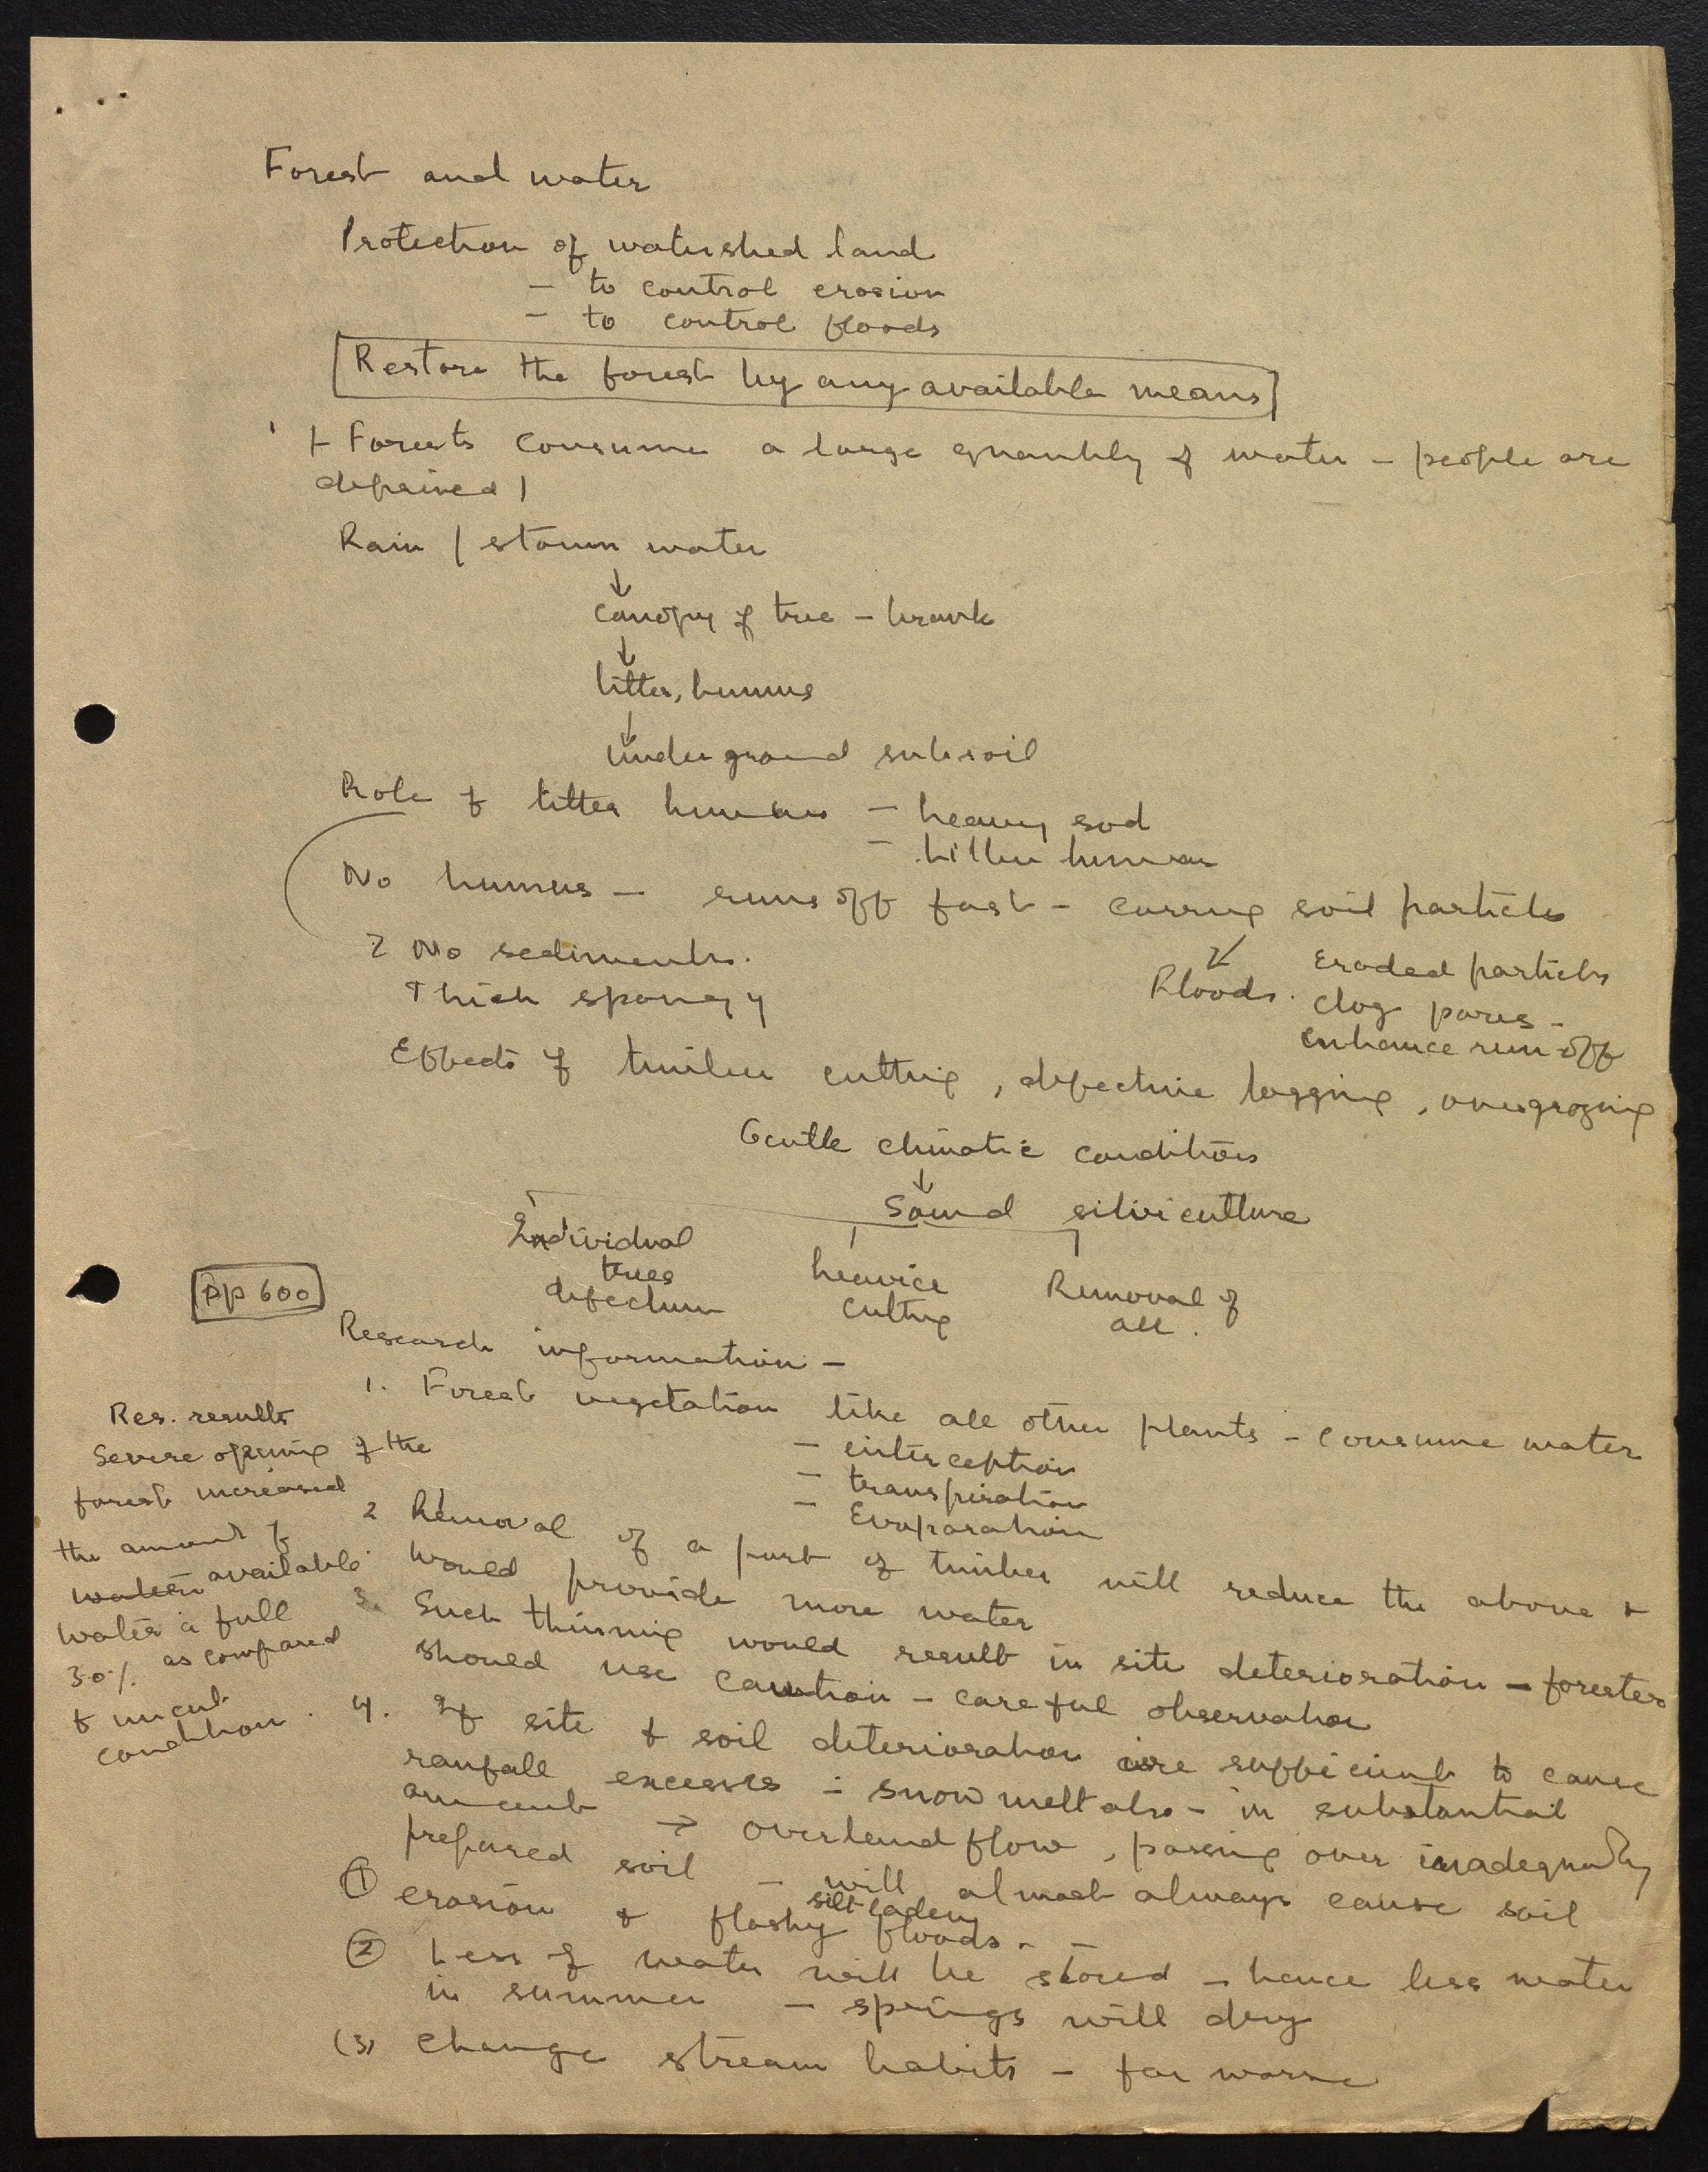 Forest and water
Protection of watershed land
- to control erosion
- to control floods
Restore the forest by any available means
Forests consume a large quantity of water - people are
deprived !
Rain / storm water
↓
canopy of tree -
↓
litter, humus
↓
underground subsoil
Role of litter humus - heavy sod
- litter humus
No humus - runs off fast - carrying soil particles
2 No sediments.
Thick spongy
Floods.
Eroded particles
clog pores -
enhance run-off
Effects of timber cutting, defective logging, overgrazing
Gentle climatic conditions
↓
Sound silviculture
Individual
trees
heavier
cutting
Removal of
all.
pp 600
Research information -
1. Forest vegetation like all other plants - consume water
- interception
- transpiration
- Evaporation
2 Removal of a part of timber will reduce the above &
would provide more water
3. Such thinning would result in site deterioration - forester
should use caution - careful observation
4. If site & soil deterioration are sufficient to cause
rainfall excesses - snow melt also - in substantial
amount → overland flow, passing over inadequately
prepared soil - will almost always cause soil
① erosion & flashy silt laden floods. -
② Less of water will be stored - hence less water
in summer - springs will dry
(3) change stream habits - for worse
Res. results
Severe opening of the
forest increased
the amount of
available
water a full
30% as compared
to uncut
condition.